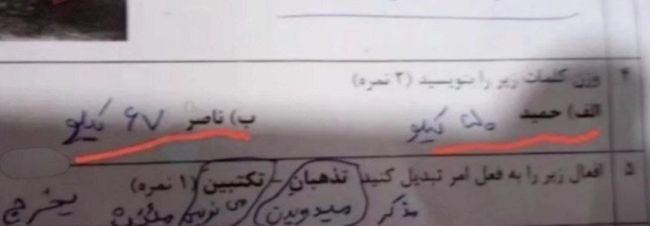 ۴ وزن کلمات زیر را بنویسید (۲ نمره)
الف) حمید ۵۰ کیلو ب) ناصر ۶۷ کیلو
۵ افعال زیر را به فعل امر تبدیل کنید تذهبانِ - تکتبین (۱ نمره)
مذکر میدویدن می نویسی مؤنث یخرج